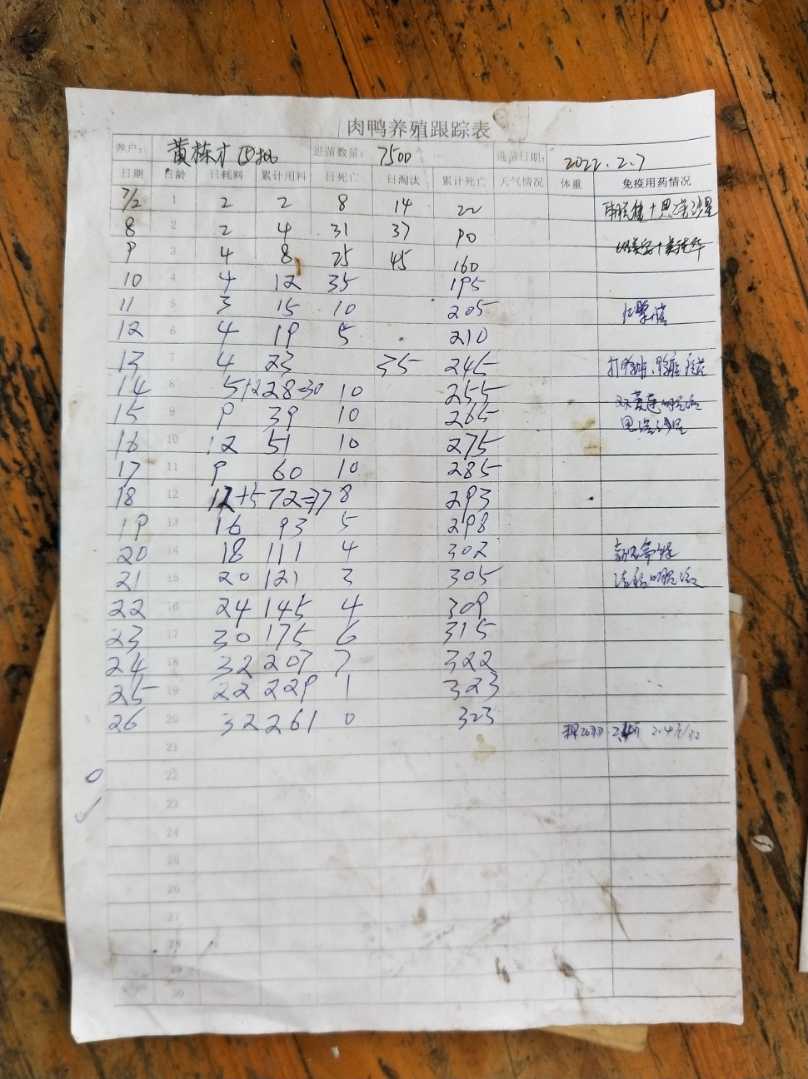 肉鸭养殖跟踪表
养户: 黄栋才 四批 进苗数量: 7500 进苗日期: 2022.2.7
日期 日龄 日耗料 累计用料 日死亡 日淘汰 累计死亡 天气情况 体重 免疫用药情况
7/2 1 2 2 8 14 22
8 2 2 4 31 37 90
9 3 4 8 25 45 160
10 4 4 12 35 195
11 5 3 15 10 205
12 6 4 19 5 210
13 7 4 23 35 245
14 8 5+2 28=30 10 255
15 9 9 39 10 265
16 10 12 51 10 275
17 11 9 60 10 285
18 12 12+5 72=77 8 293
19 13 16 93 5 298
20 14 18 111 4 302
21 15 20 121 3 305
22 16 24 145 4 309
23 17 30 175 6 315
24 18 32 207 7 322
25 19 22 229 1 323
26 20 32 261 0 323
21
22
23
24
25
26
27
28
29
30